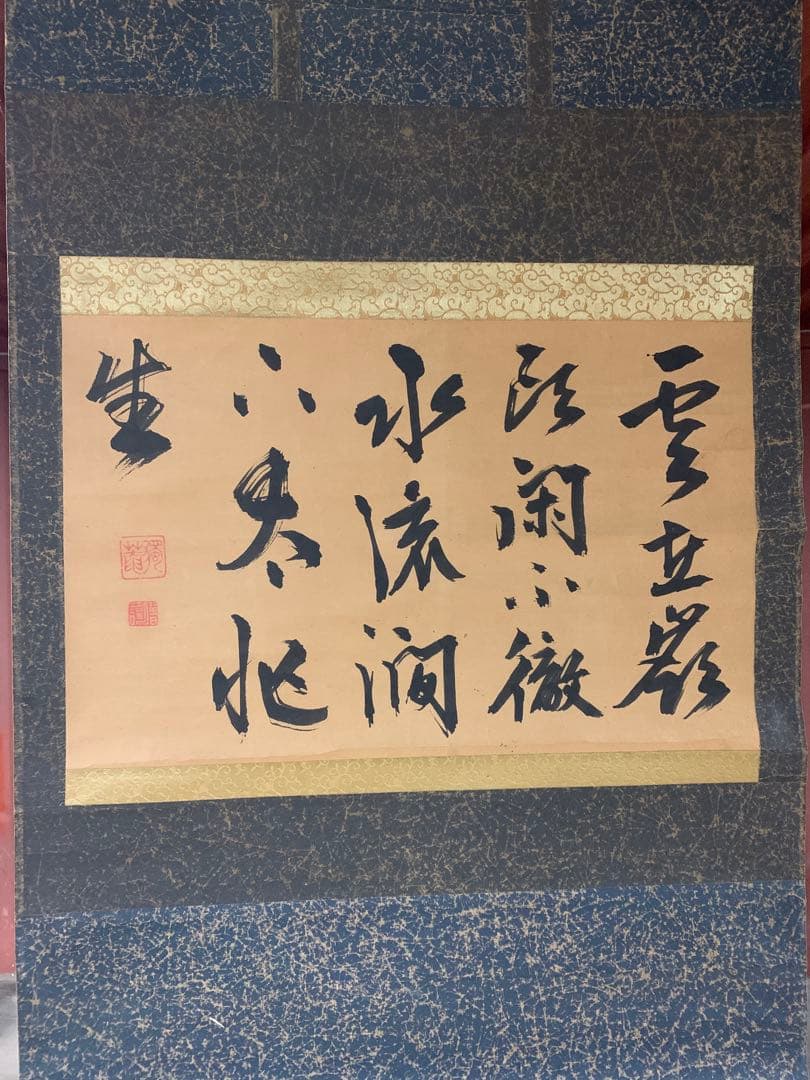 雲在嶺
頭閑不徹
水流澗
下太忙
生